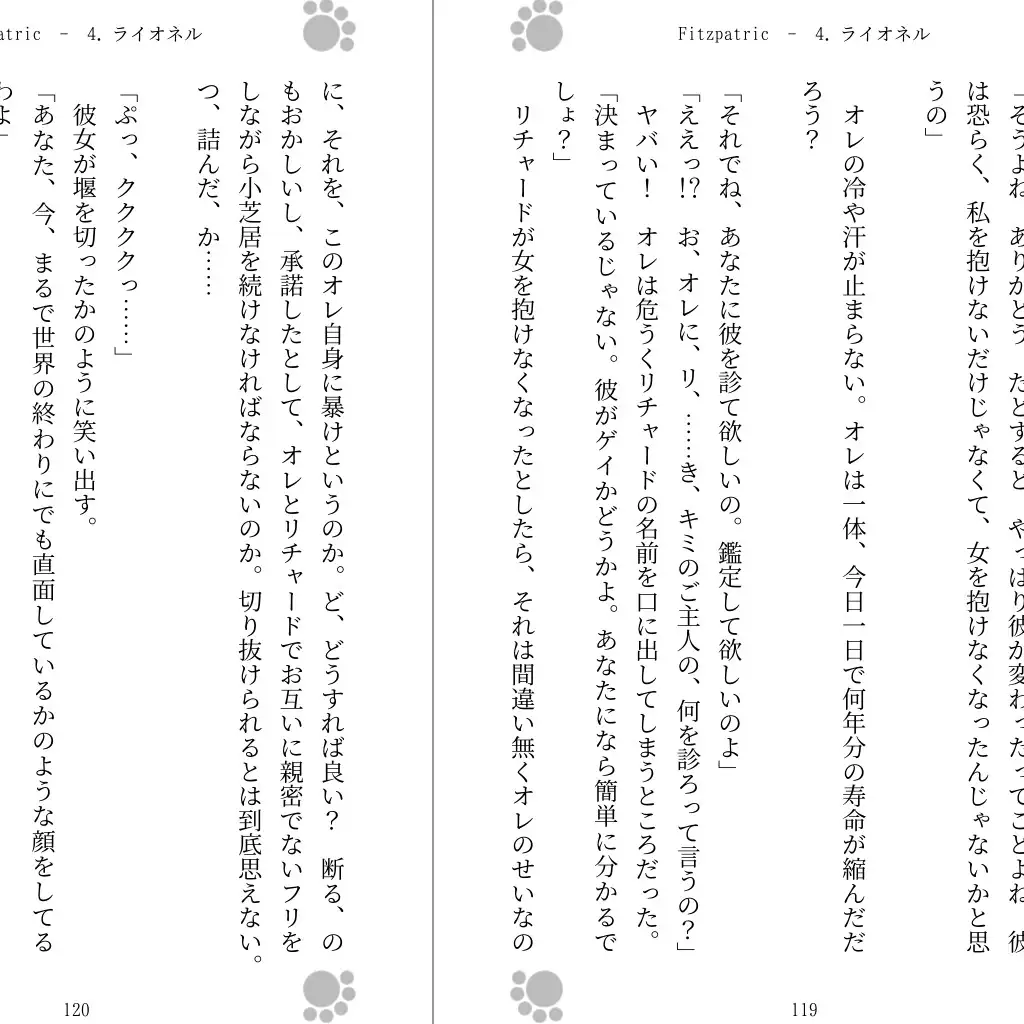 Fitzpatric － 4. ライオネル
は恐らく、私を抱けないだけじゃなくて、女を抱けなくなったんじゃないかと思
うの」
オレの冷や汗が止まらない。オレは一体、今日一日で何年分の寿命が縮んだだ
ろう？
「それでね、あなたに彼を診て欲しいの。鑑定して欲しいのよ」
「ええっ!?　お、オレに、リ、……き、キミのご主人の、何を診ろって言うの？」
ヤバい！　オレは危うくリチャードの名前を口に出してしまうところだった。
「決まっているじゃない。彼がゲイかどうかよ。あなたになら簡単に分かるで
しょ？」
リチャードが女を抱けなくなったとしたら、それは間違い無くオレのせいなの
119
atric － 4. ライオネル
に、それを、このオレ自身に暴けというのか。ど、どうすれば良い？　断る、の
もおかしいし、承諾したとして、オレとリチャードでお互いに親密でないフリを
しながら小芝居を続けなければならないのか。切り抜けられるとは到底思えない。
つ、詰んだ、か……
「ぷっ、ククククっ……」
彼女が堰を切ったかのように笑い出す。
「あなた、今、まるで世界の終わりにでも直面しているかのような顔をしてる
わよ」
120